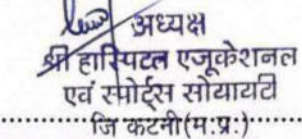 अध्यक्ष
श्री हास्पिटल एजूकेशनल
एवं स्पोर्ट्स सोयायटी
जि कटनी (म.प्र.)